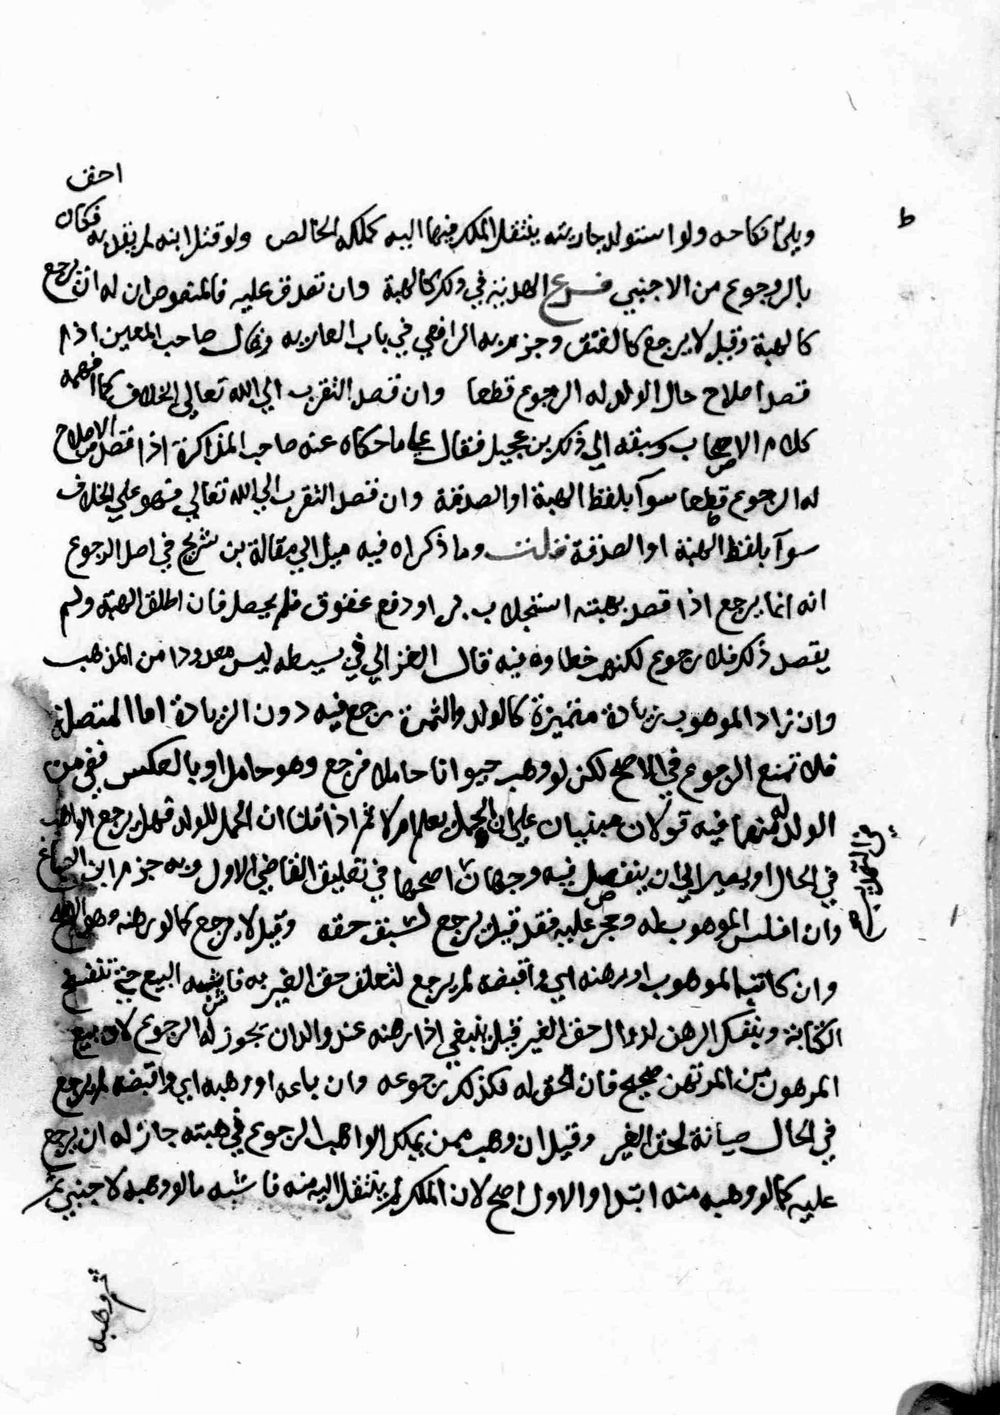 احق
ويلى نكاحه ولو استولد جاريته ينتقل الملك فيها اليه كملكه الخالص ولو قتل ابنه لم يقد به فكان
بالرجوع من الاجنبي فرع الهدية في ذلك كالهبة وان تصدق عليه فالمنصوص ان له ان يرجع
كالهبة وقيل لا يرجع كالعتق وجزم به الرافعي في باب العاريه وقال صاحب المعين اذا
قصد اصلاح حال الولد له الرجوع قطعا وان قصد التقرب الى الله تعالى الخلاف كما افهمه
كلام الاصحاب وسبقه الى ذلك بن عجيل فقال على ما حكاه عنه صاحب المذاكرة اذا قصد الاصلاح
له الرجوع قطعا سوآ بلفظ الهبة او الصدقة وان قصد التقرب الى الله تعالى فهو على الخلاف
سوآ بلفظ الهبة او الصدقة قلت وما ذكراه فيه ميل الى مقالة بن شريح في اصل الرجوع
انه انما يرجع اذا قصد بهبته استجلاب بر او دفع عقوق فلم يحصل فان اطلق الهبة ولم
يقصد ذلك فلا رجوع لكنهم خطاوه فيه قال الغزالي في بسيطه ليس معدودا من المذهب
وان زاد الموهوب زيادة متميزة كالولد والثمرة رجع فيه دون الزيادة اما المتصلة
فلا تمنع الرجوع في الاصح لكن لو وهب حيوانا حاملا فرجع وهو حامل او بالعكس ففي من
الولد منهما فيه قولان مبنيان على ان الحمل يعلم ام لا ثم اذا قلنا ان الحمل للولد فهل يرجع الواهب
في الحال او يصبر الى ان ينفصل فيه وجهان اصحهما في تعليق القاضي الاول وبه جزم ابن الصباغ
وان افلس الموهوب له وحجر عليه فقد قيل يرجع لسبق حقه وقيل لا يرجع كما لو رهنه وهو الاصح
وان كاتب الموهوب او رهنه اي واقبضه لم يرجع لتعلق حق الغير به فاشبه البيع حتى تنفسخ
الكتابة وينفك الرهن لزوال حق الغير قيل ينبغي اذا رهنه عند والد ان يجوز له الرجوع لان بيع
المرهون من المرتهن صحيح فان الحق له فكذلك رجوعه وان باعه او وهبه اي واقبضه لم يرجع
في الحال صيانة لحق الغير وقيل ان وهب ممن يملك الواهب الرجوع في هبته جاز له ان يرجع
عليه كما لو وهبه منه ابتدا والاول اصح لان الملك لم ينتقل اليه منه فاشبه ما لو وهبه لاجنبي ثم
ثم وهبه